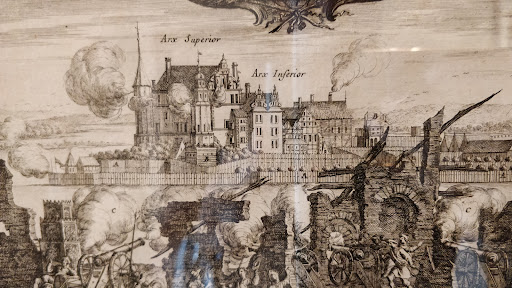 Arx Superior
Arx Inferior
C